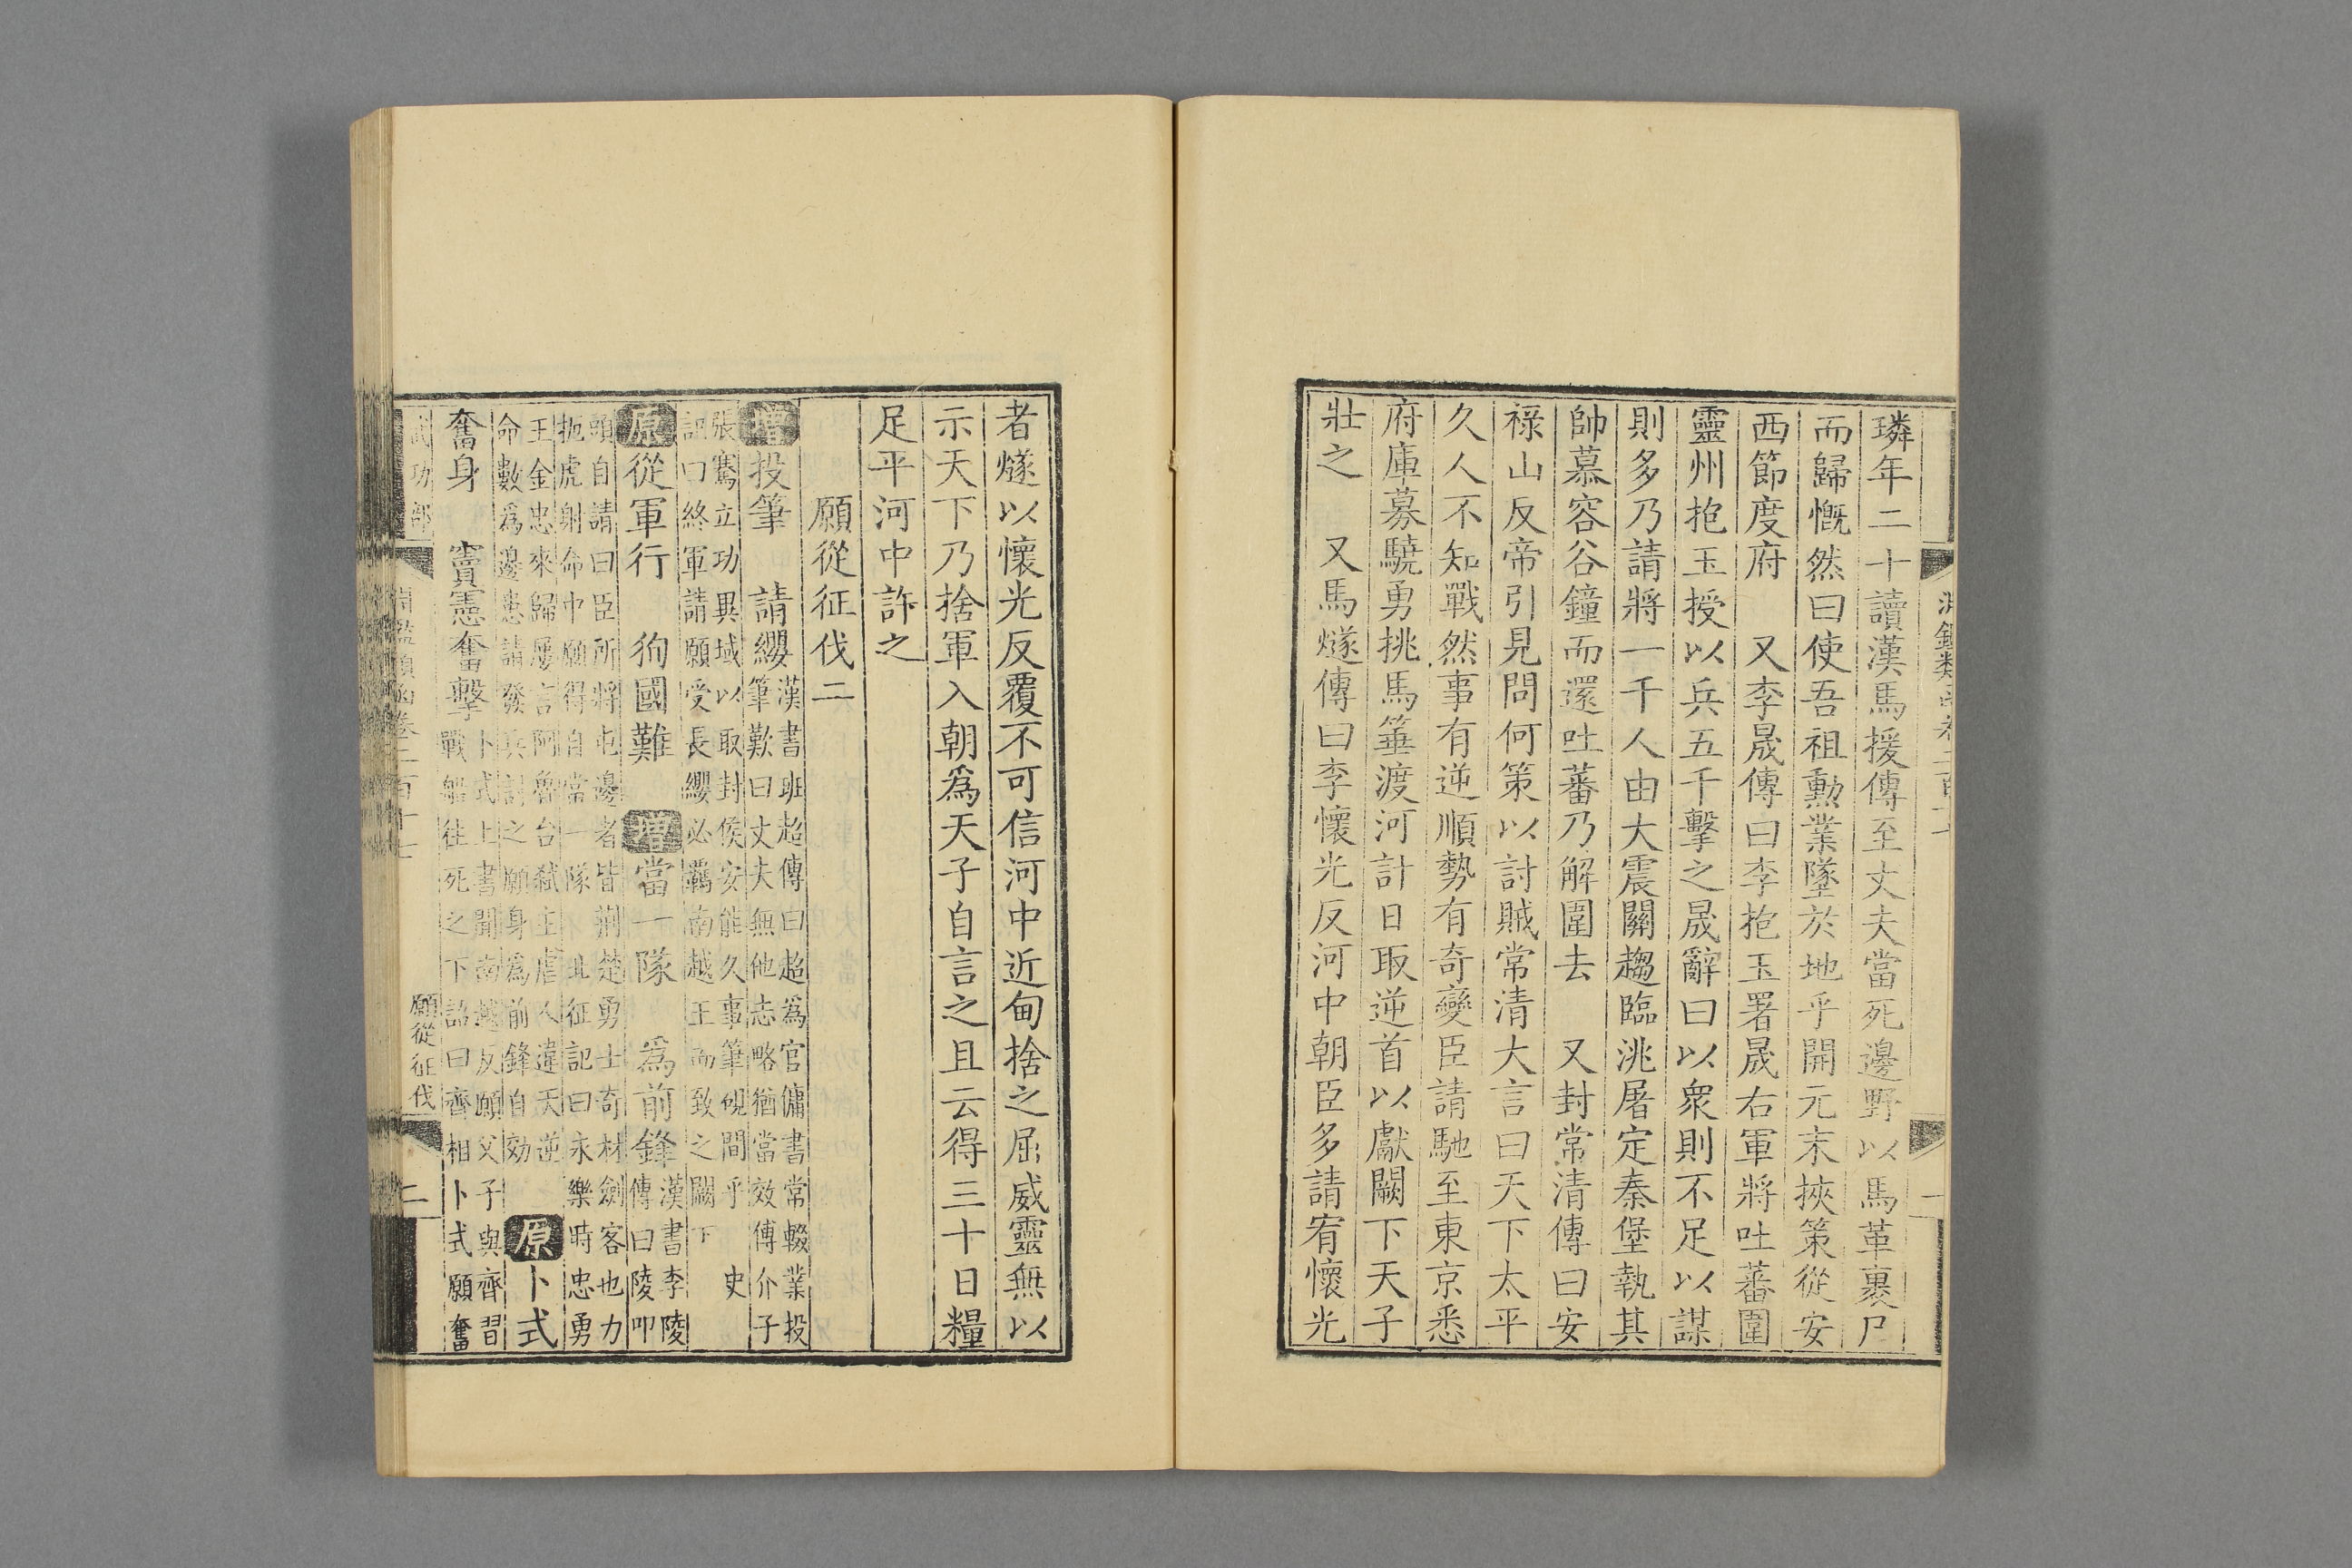 璘年二十讀漢馬援傳至丈夫當死邊野以馬革裹尸
而歸慨然曰使吾祖勳業墜於地乎開元末挾策從安
西節度府　又李晟傳曰李抱玉署晟右軍將吐蕃圍
靈州抱玉授以兵五千擊之晟辭曰以衆則不足以謀
則多乃請將一千人由大震關趨臨洮屠定秦堡執其
帥慕容谷鐘而還吐蕃乃解圍去　又封常清傳曰安
祿山反帝引見問何策以討賊常清大言曰天下太平
久人不知戰然事有逆順勢有奇變臣請馳至東京悉
府庫募驍勇挑馬箠渡河計日取逆首以獻闕下天子
壯之　又馬燧傳曰李懷光反河中朝臣多請宥懷光
者燧以懷光反覆不可信河中近甸捨之屈威靈無以
示天下乃捨軍入朝爲天子自言之且云得三十日糧
足平河中許之
願從征伐二
增投筆　請纓漢書班超傳曰超爲官傭書常輟業投
筆歎曰丈夫無他志略猶當效傅介子
張騫立功異域以取封侯安能久事筆硯間乎　史
記曰終軍請願受長纓必羈南越王而致之闕下
原從軍行　狥國難　增當一隊　爲前鋒漢書李陵
傳曰陵叩
頭自請曰臣所將屯邊者皆荆楚勇士奇材劍客也力
扼虎射命中願得自當一隊　北征記曰永樂時忠勇
王金忠來歸屢言阿魯台弒主虐人違天逆
命數爲邊患請發兵討之願身爲前鋒自効
原卜式
奮身　竇憲奮擊卜式上書聞南越反願父子與齊習
戰船往死之下詔曰齊相卜式願奮
武功部
淵鑑類函卷二百十七
願從征伐
二